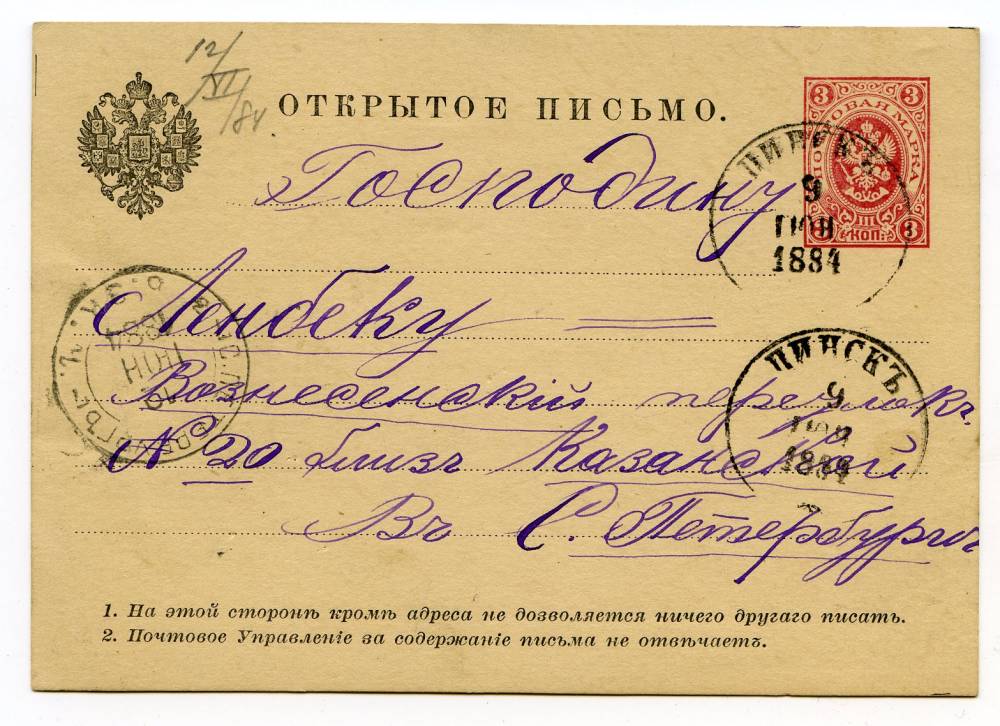 12/VI/84
ОТКРЫТОЕ ПИСЬМО.
3 ПОЧТОВАЯ МАРКА 3
3 III КОП. 3
ПИНСКЪ
9
ІЮН
1884
Господину
Ленбеку
ПИНСКЪ
9
ІЮН
1884
10
ІЮН
1884
Вознесенскій переулокъ
N 20 близъ Казанской
Въ С. Петербургъ
1. На этой сторонѣ кромѣ адреса не дозволяется ничего другаго писать.
2. Почтовое Управленіе за содержаніе письма не отвѣчаетъ.